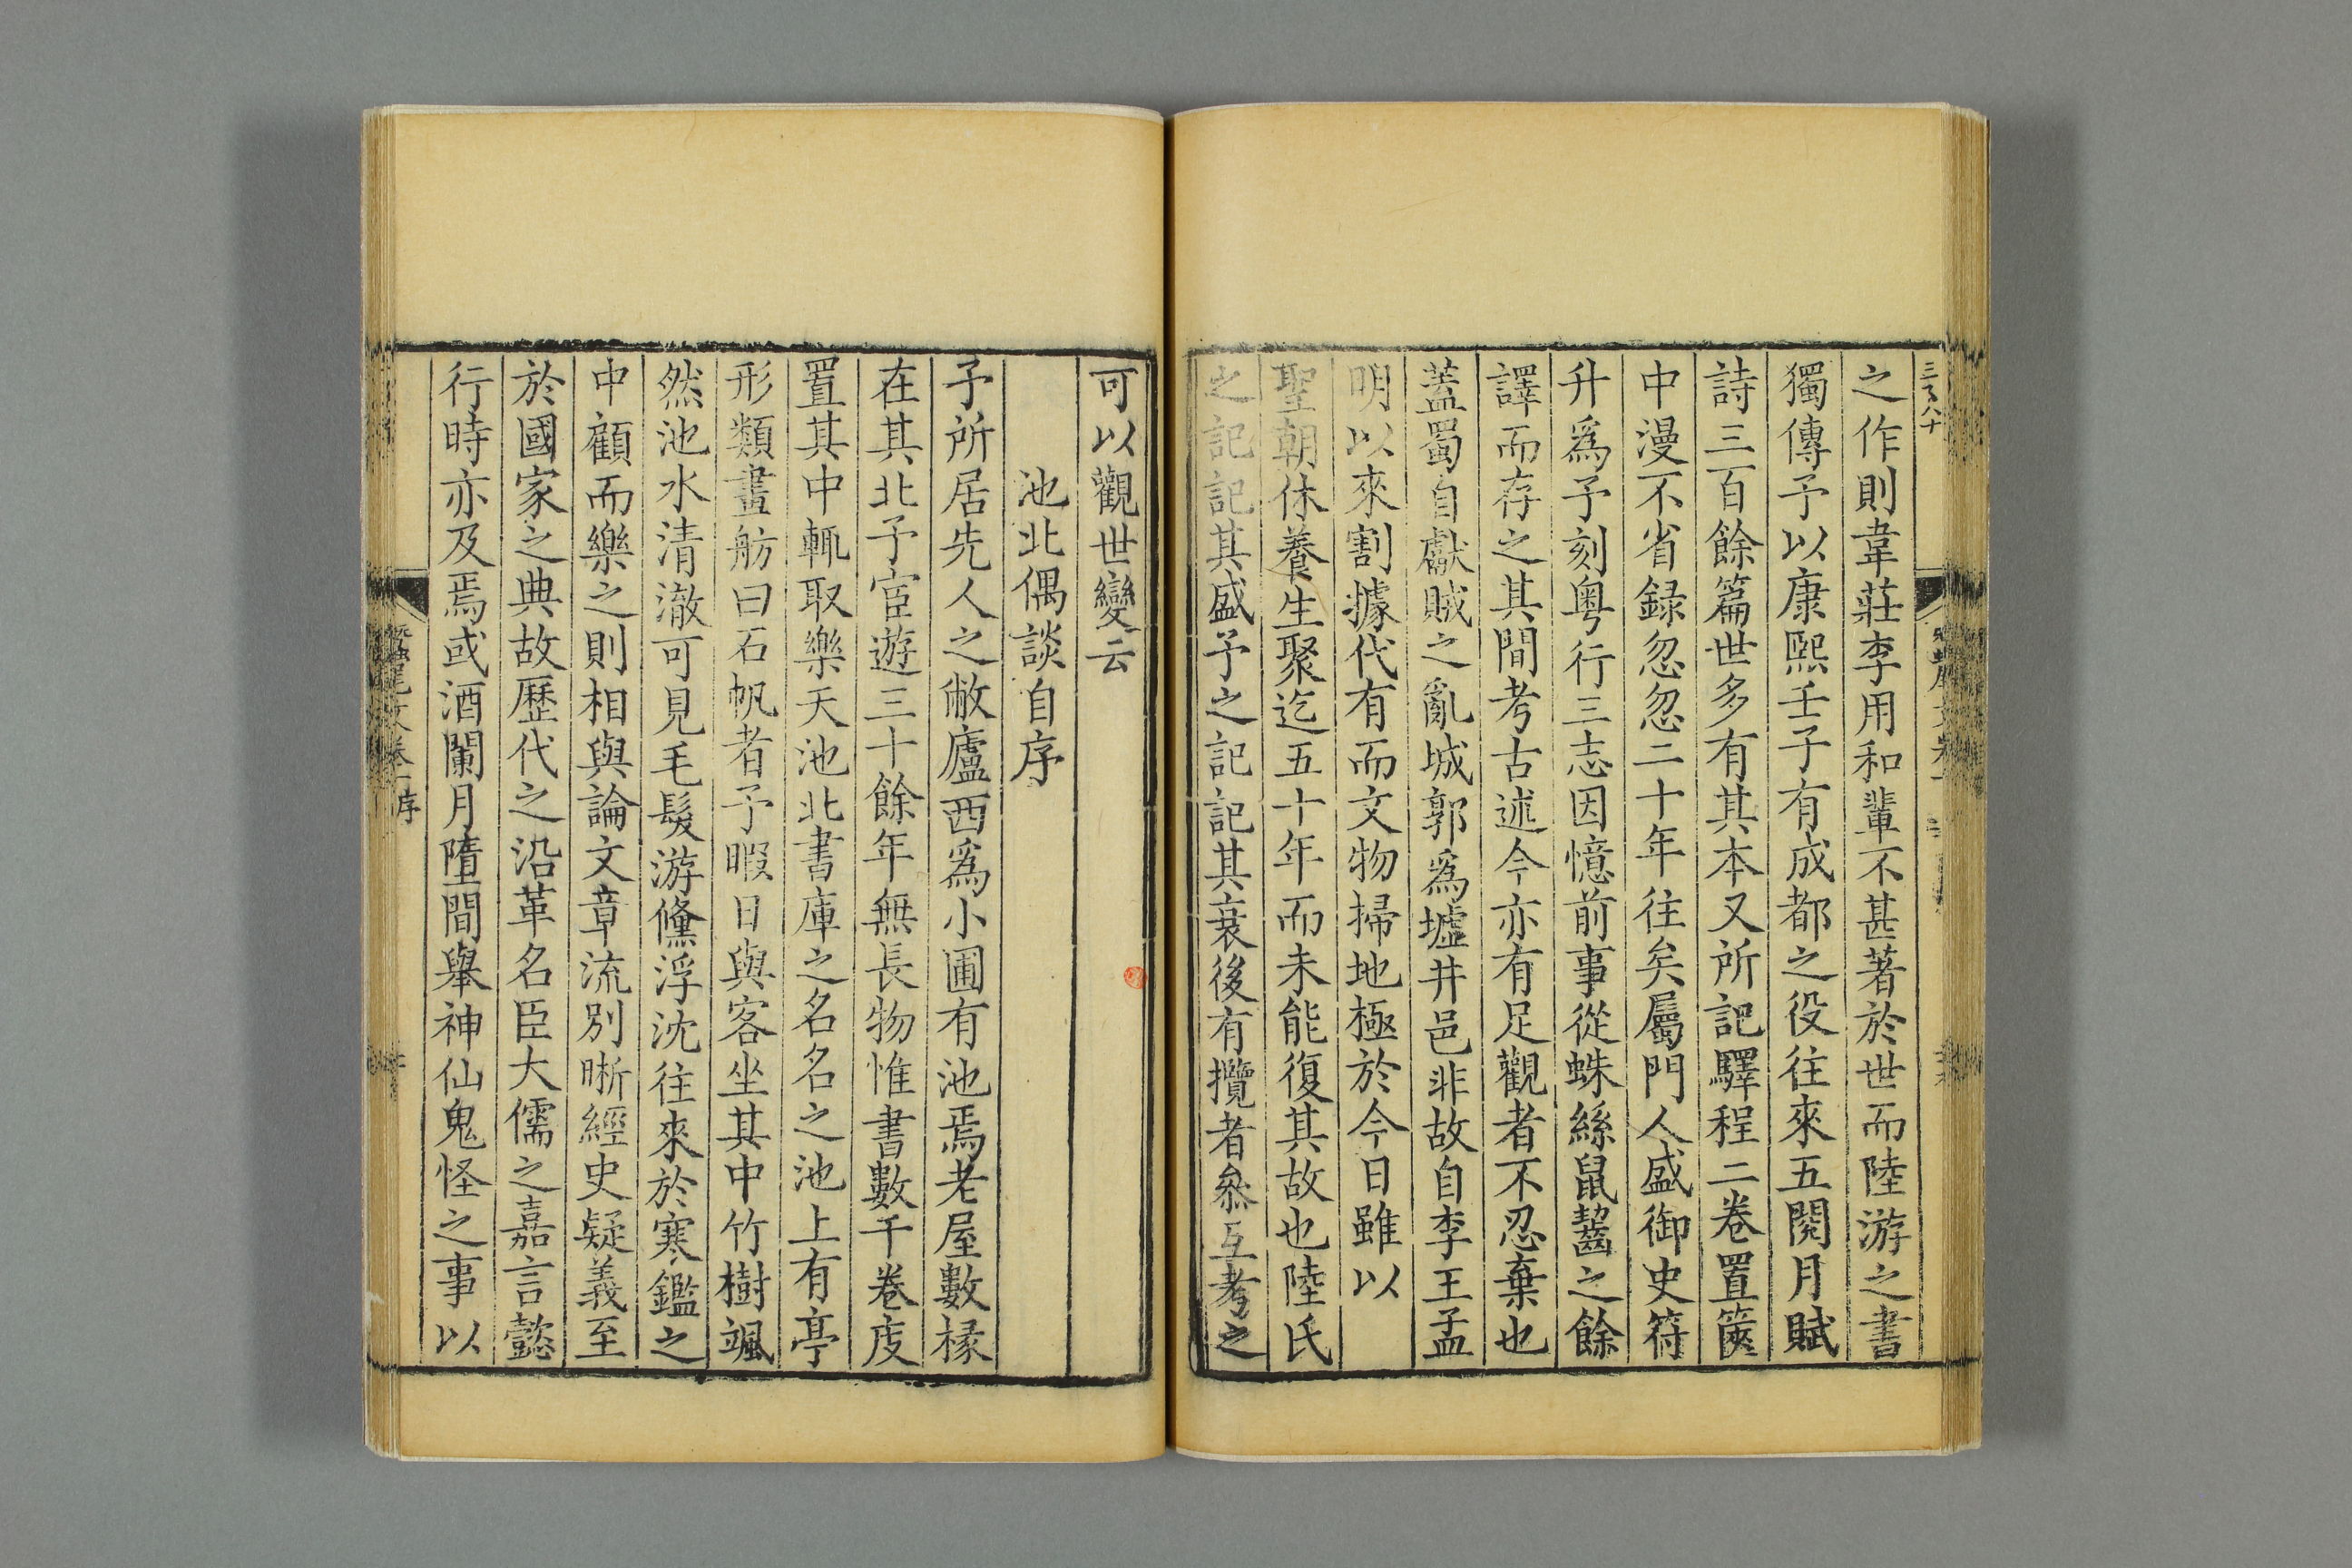 之作則韋莊李用和輩不甚著於世而陸游之書
獨傳予以康熙壬子有成都之役往來五閱月賦
詩三百餘篇世多有其本又所記驛程二卷置篋
中漫不省録忽忽二十年往矣屬門人盛御史符
升爲予刻粤行三志因憶前事從蛛絲鼠齧之餘
譯而存之其間考古述今亦有足觀者不忍棄也
蓋蜀自獻賊之亂城郭爲墟井邑非故自李王孟
明以來割據代有而文物掃地極於今日雖以
聖朝休養生聚迄五十年而未能復其故也陸氏
之記記其盛予之記記其衰後有攬者叅互考之
可以觀世變云
池北偶談自序
予所居先人之敝廬西爲小圃有池焉老屋數椽
在其北予宦遊三十餘年無長物惟書數千卷庋
置其中輒取樂天池北書庫之名名之池上有亭
形類畫舫曰石帆者予暇日與客坐其中竹樹颯
然池水清澈可見毛髮游鯈浮沈往來於寒鑑之
中顧而樂之則相與論文章流別晰經史疑義至
於國家之典故歷代之沿革名臣大儒之嘉言懿
行時亦及焉或酒闌月墮間舉神仙鬼怪之事以
蠶尾文卷一序